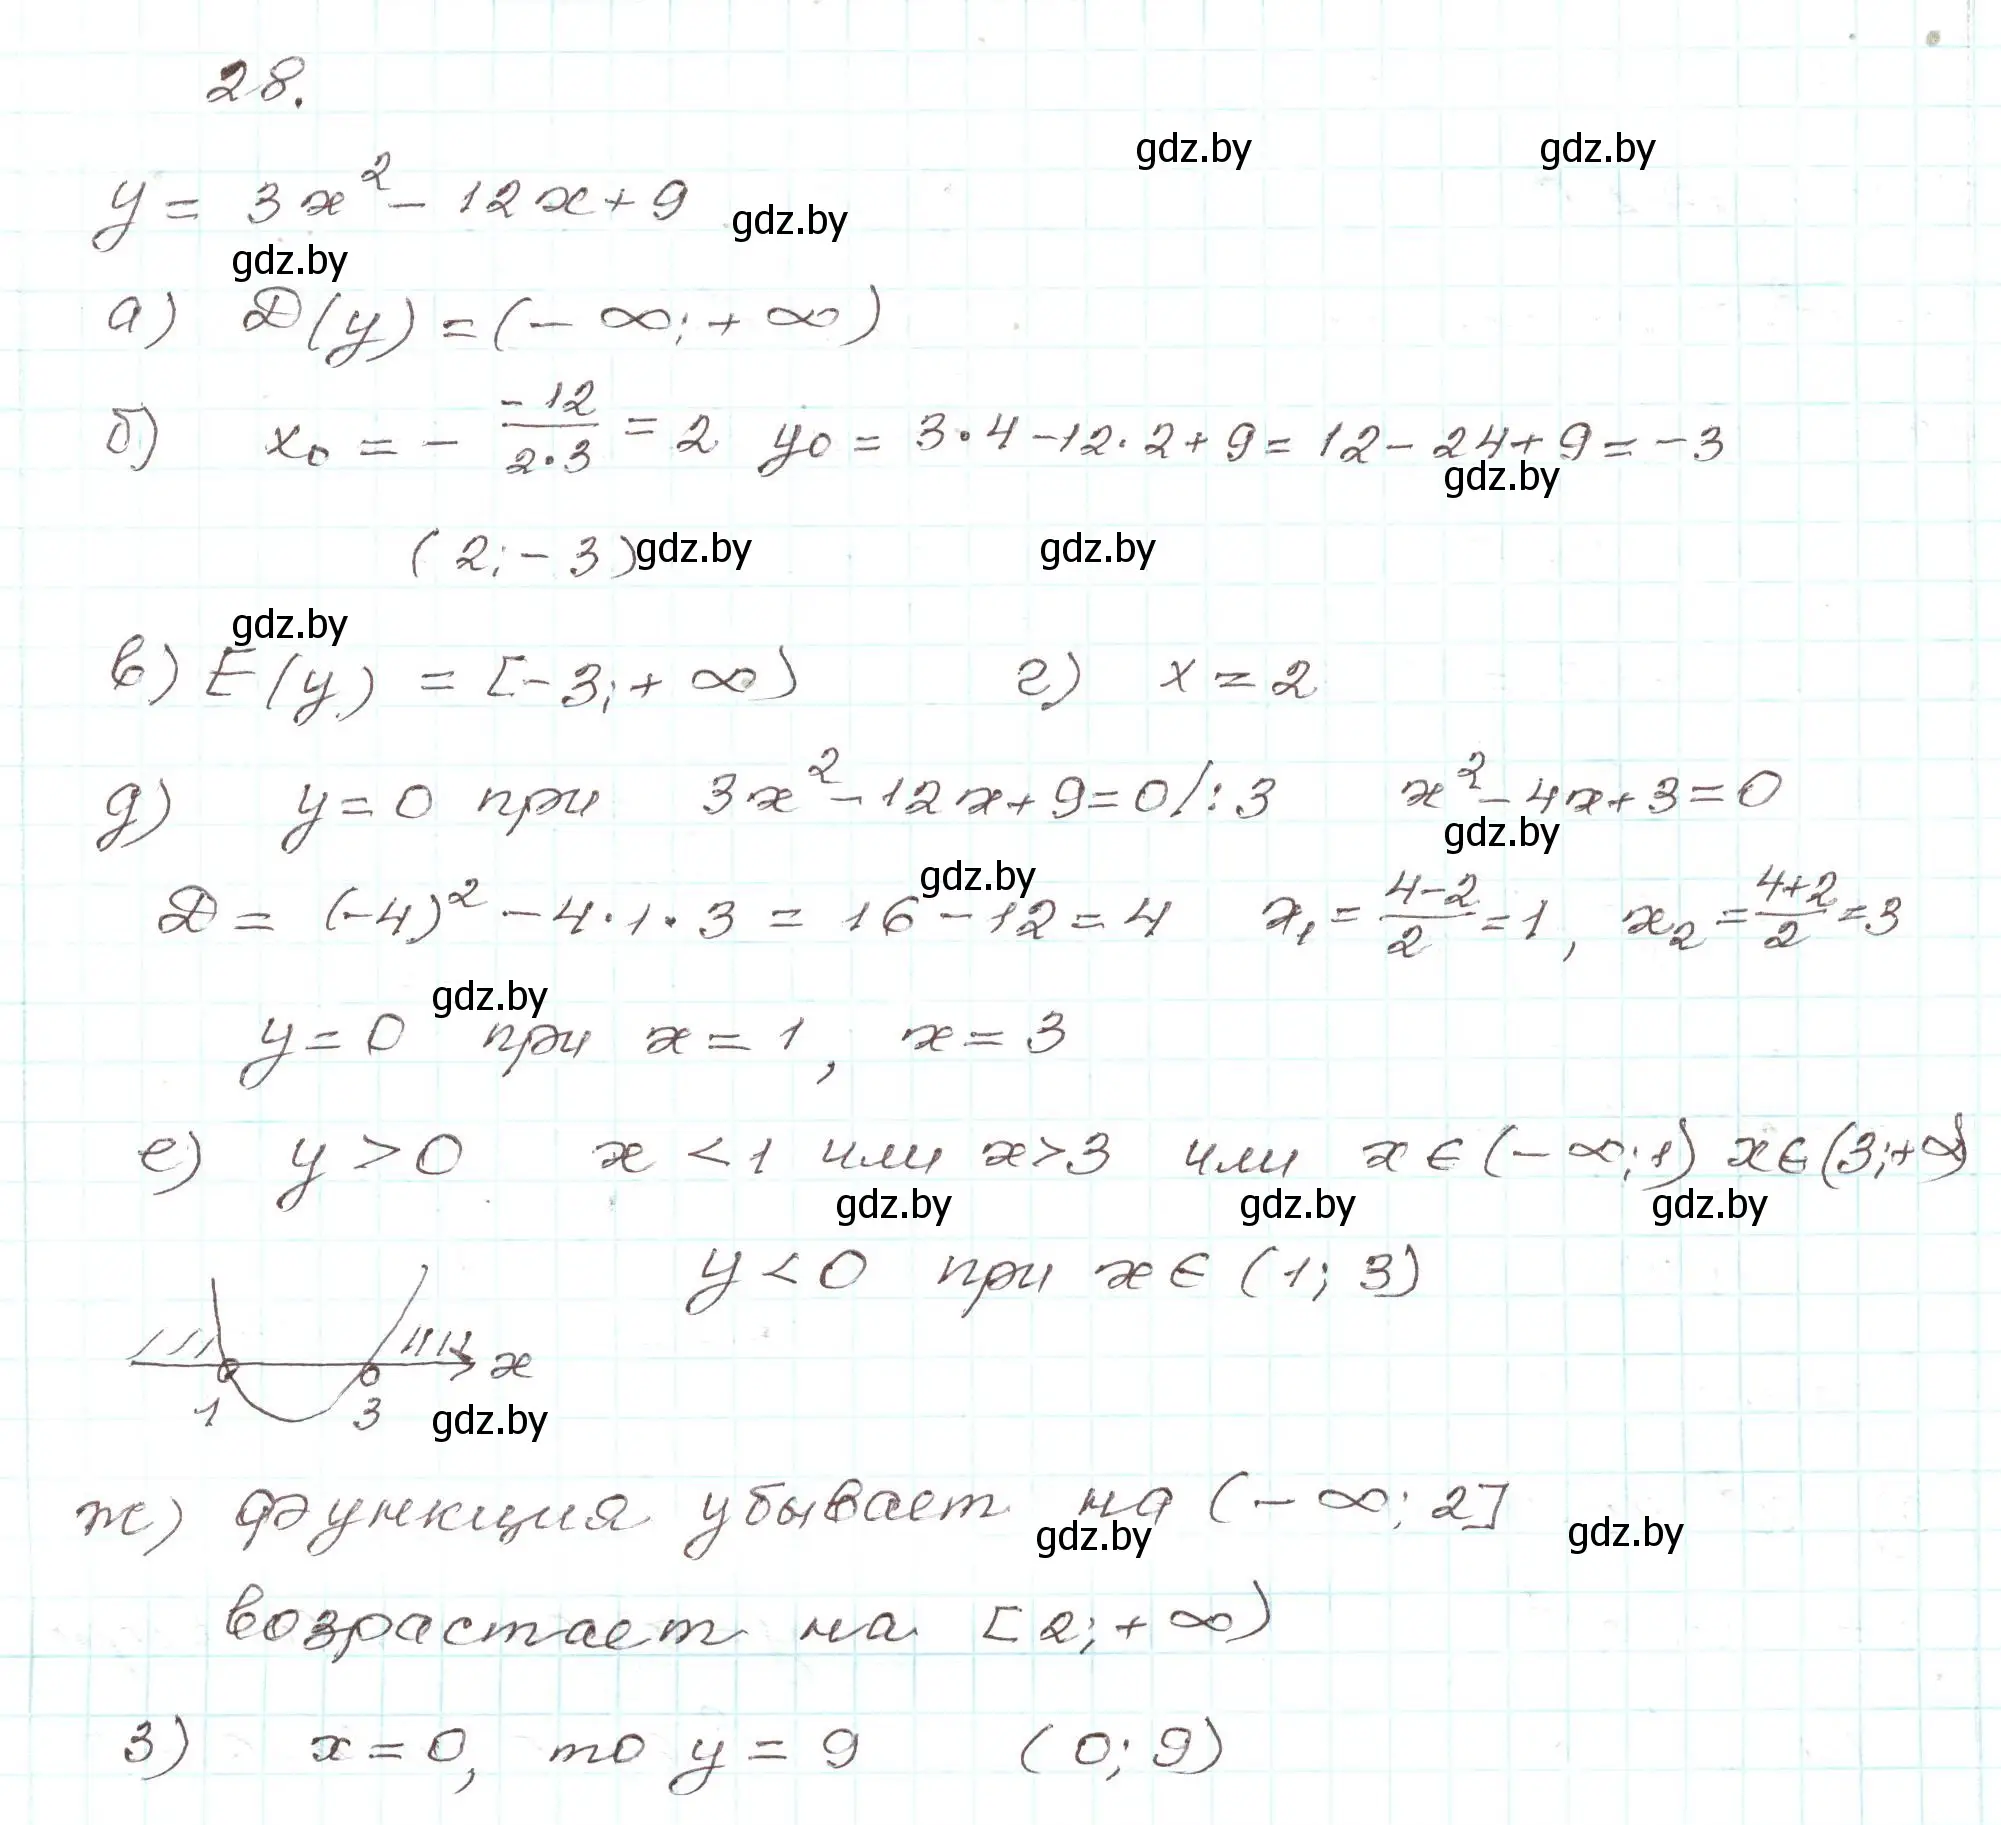 28.
gdz.by gdz.by
y = 3x² - 12x + 9 gdz.by
gdz.by
а) D(y) = (- ∞; + ∞)
б) x₀ = - -12/2·3 = 2 y₀ = 3·4 - 12·2 + 9 = 12 - 24 + 9 = -3
gdz.by
(2; - 3) gdz.by gdz.by
gdz.by
в) E(y) = [-3; + ∞) г) x = 2
д) y = 0 при 3x² - 12x + 9 = 0 /: 3 x² - 4x + 3 = 0
gdz.by
gdz.by
D = (-4)² - 4·1·3 = 16 - 12 = 4 x₁ = 4-2/2 = 1, x₂ = 4+2/2 = 3
gdz.by
y = 0 при x = 1, x = 3
е) y > 0 x < 1 или x > 3 или x ∈ (- ∞; 1) x ∈ (3; + ∞)
gdz.by gdz.by gdz.by
y < 0 при x ∈ (1; 3)
x
1 3 gdz.by
ж) функция убывает на (- ∞; 2]
gdz.by gdz.by
возрастает на [2; + ∞)
з) x = 0, то y = 9 (0; 9)